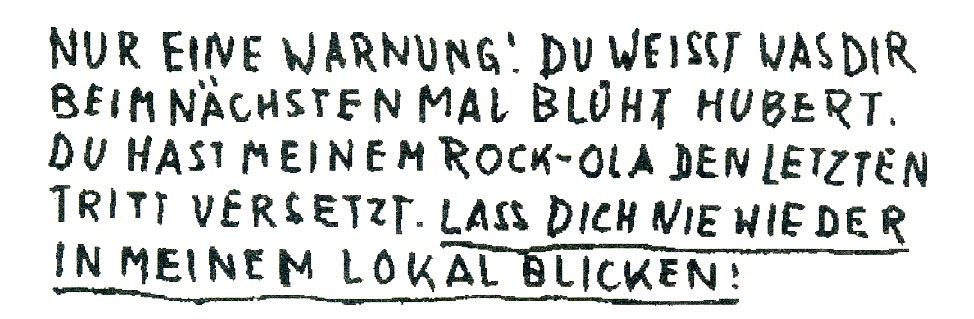 NUR EINE WARNUNG! DU WEISST WAS DIR
BEIM NÄCHSTEN MAL BLÜHT HUBERT.
DU HAST MEINEM ROCK-OLA DEN LETZTEN
TRITT VERSETZT. LASS DICH NIE WIEDER
IN MEINEM LOKAL BLICKEN!